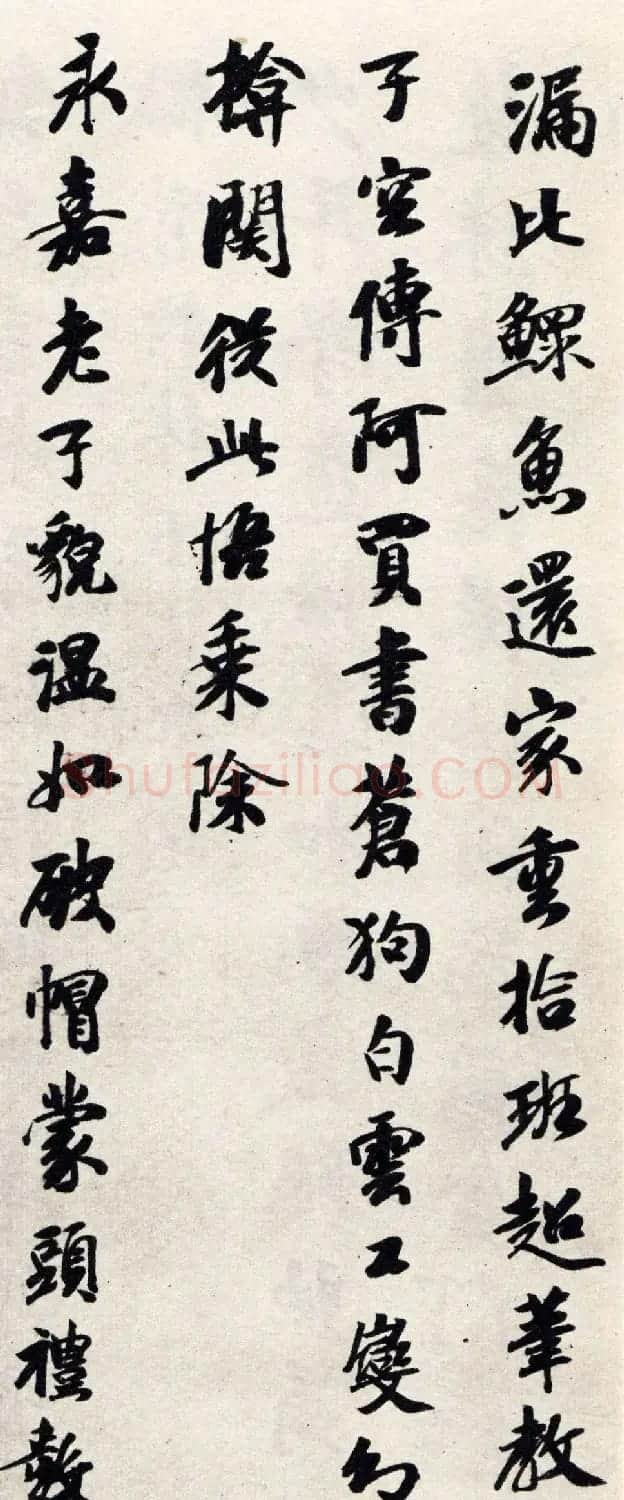 漏比鰥魚還家重拾班超筆教
子空傳阿買書蒼狗白雲工變幻
揜関從此悟乗除
永嘉老子貌温如破帽蒙頭禮數
Shufaziliao.COM